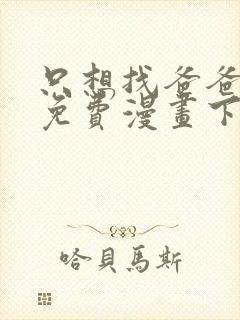 只想找爸爸
免費漫畫下
哈貝馬斯